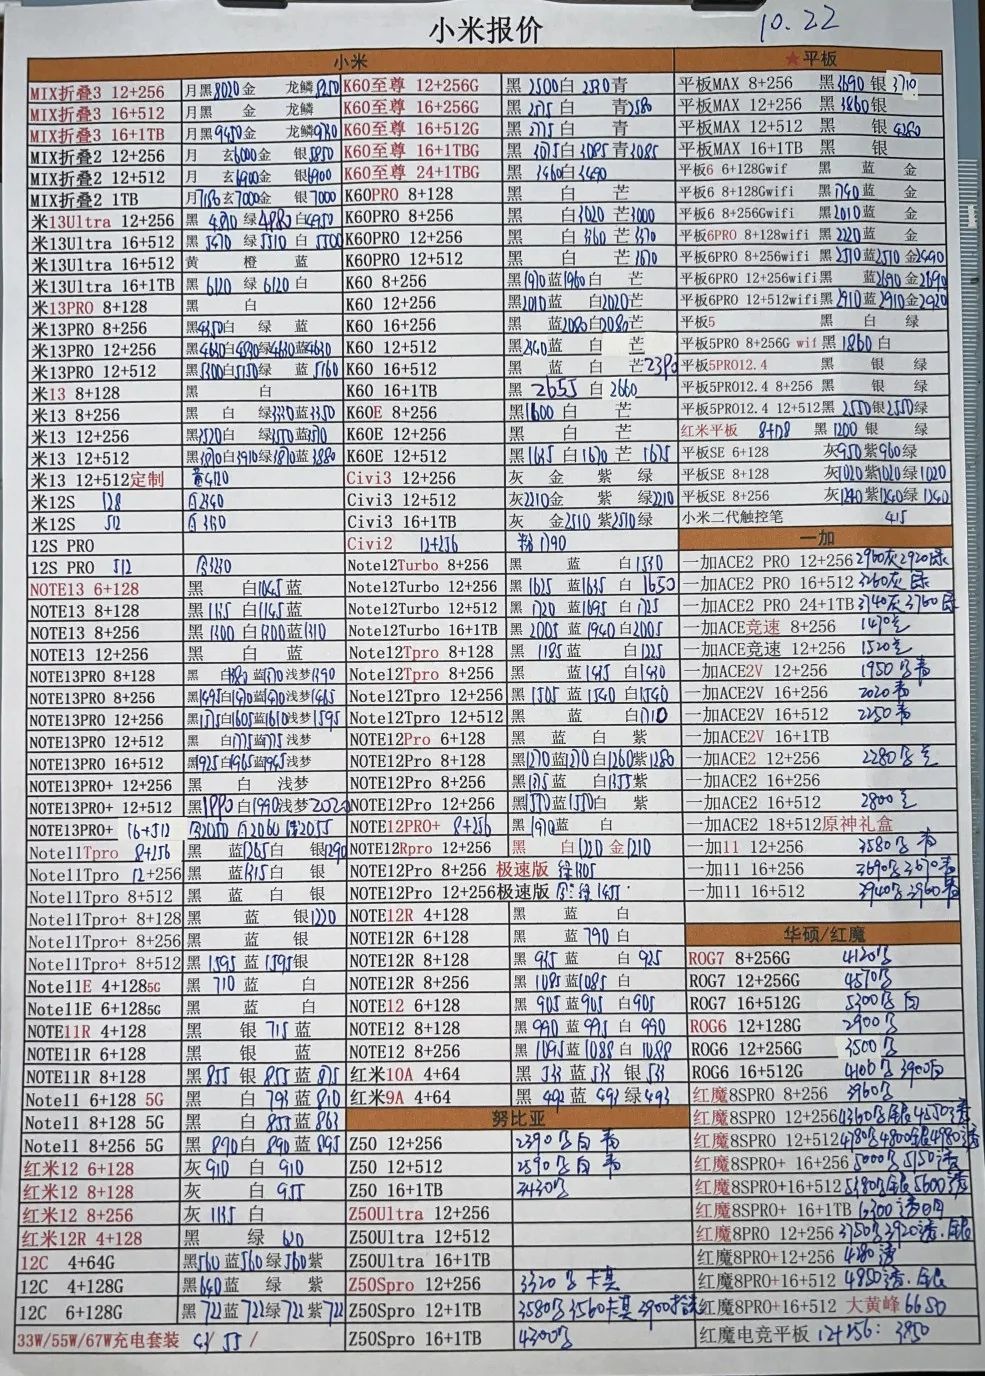 小米报价
10.22
小米
MIX折叠3 12+256 月黑8020金 龙鳞8250
MIX折叠3 16+512 月黑 金 龙鳞
MIX折叠3 16+1TB 月黑9450金 龙鳞
MIX折叠2 12+256 月 玄6000金 银5850
MIX折叠2 12+512 月 玄6900金 银6900
MIX折叠2 1TB 月7150玄7000金 银7000
米13Ultra 12+256 黑 绿 白4950
米13Ultra 16+512 黑5470 绿5510 白5500
米13Ultra 16+512 黄 橙 蓝
米13Ultra 16+1TB 黑6120 绿6120白
米13PRO 8+128 黑 白
米13PRO 8+256 黑4350白 绿 蓝
米13PRO 12+256 黑4630白4830绿4630蓝4630
米13PRO 12+512 黑5300白5150绿 蓝5160
米13 8+128 黑 白
米13 8+256 黑 白 绿3330蓝3350
米13 12+256 黑3520白 绿3570蓝3570
米13 12+512 黑3870白3910绿3870蓝3880
米13 12+512定制
米12S 128 白2340
米12S 512
12S PRO
12S PRO 512
NOTE13 6+128 黑 白1045蓝
NOTE13 8+128 黑1135白1145蓝
NOTE13 8+256 黑1300白1300蓝1310
NOTE13 12+256 黑 白 蓝
NOTE13PRO 8+128 黑 白 蓝1370浅梦1390
NOTE13PRO 8+256 黑1495白1470蓝1470浅梦1465
NOTE13PRO 12+256 黑1575白1605蓝1610浅梦1595
NOTE13PRO 12+512 黑 白1775蓝1775浅梦
NOTE13PRO 16+512 黑1925白1965蓝1945浅梦
NOTE13PRO+ 12+256 黑 白 浅梦
NOTE13PRO+ 12+512 黑1990白1990浅梦2020
NOTE13PRO+ 16+512 2050 白2060 2055
Note11Tpro 8+256 黑 蓝1265白 银1290
Note11Tpro 12+256 黑 蓝1315白 银
Note11Tpro 8+512 黑 蓝 白 银
Note11Tpro+ 8+128 黑 蓝 银1220
Note11Tpro+ 8+256 黑 蓝 银
Note11Tpro+ 8+512 黑1595 蓝1595银
Note11E 4+1285G 黑 710 蓝 白
Note11E 6+1285G 黑 蓝 白
NOTE11R 4+128 黑 银715蓝
NOTE11R 6+128 黑 银 蓝
NOTE11R 8+128 黑855 银855蓝875
Note11 6+128 5G 黑 白793蓝810
Note11 8+128 5G 黑 白855蓝863
Note11 8+256 5G 黑890白890蓝895
红米12 6+128 灰910 白910
红米12 8+128 灰 白955
红米12 8+256 灰1135白
红米12R 4+128 黑 绿620
12C 4+64G 黑560蓝560绿560紫
12C 4+128G 黑640蓝 绿 紫
12C 6+128G 黑722蓝722绿722紫722
33W/55W/67W充电套装 43/ 55 /
K60至尊 12+256G 黑2500白2530青
K60至尊 16+256G 黑2575白 青2580
K60至尊 16+512G 黑2775白 青
K60至尊 16+1TBG 黑3075白3085青3085
K60至尊 24+1TBG 黑3460白3490
K60PRO 8+128 黑 白 芒
K60PRO 8+256 黑 白3020芒3000
K60PRO 12+256 黑 白3360芒3370
K60PRO 12+512 黑 白 芒
K60 8+256 黑1970蓝1960白 芒
K60 12+256 黑2010蓝 白2020芒
K60 16+256 黑 蓝2080白2080芒
K60 12+512 黑2340蓝 白 芒
K60 16+512 黑 蓝 白 芒2390
K60 16+1TB 黑 2655 白 2660
K60E 8+256 黑1600白 芒
K60E 12+256 黑 白 芒
K60E 12+512 黑1635白1670芒1675
Civi3 12+256 灰 金 紫 绿
Civi3 12+512 灰2210金 紫 绿2210
Civi3 16+1TB 灰 金2510紫2510绿
Civi2 12+256 粉1790
Note12Turbo 8+256 黑 蓝 白1530
Note12Turbo 12+256 黑1625蓝1635白1650
Note12Turbo 12+512 黑1720蓝1695白1725
Note12Turbo 16+1TB 黑2005蓝1940白2005
Note12Tpro 8+128 黑1185蓝 白1225
Note12Tpro 8+256 黑 蓝1435白1430
Note12Tpro 12+256 黑1505蓝1540白1540
Note12Tpro 12+512 黑 蓝 白1710
NOTE12Pro 6+128 黑 蓝 白 紫
NOTE12Pro 8+128 黑1270蓝1270白1260紫1280
NOTE12Pro 8+256 黑1375蓝 白1355紫
NOTE12Pro 12+256 黑1570蓝1550白 紫
NOTE12PRO+ 8+256 黑1970蓝 白
NOTE12Rpro 12+256 黑 白1220金1210
NOTE12Pro 8+256 极速版 绿1305
NOTE12Pro 12+256极速版 绿1455
NOTE12R 4+128 黑 蓝 白
NOTE12R 6+128 黑 蓝790白
NOTE12R 8+128 黑935蓝 白925
NOTE12R 8+256 黑1085蓝1085白
NOTE12 6+128 黑905蓝905白905
NOTE12 8+128 黑990蓝995白990
NOTE12 8+256 黑1095蓝1088白1088
红米10A 4+64 黑533蓝533银533
红米9A 4+64 黑492蓝493绿493
努比亚
Z50 12+256 2390 白
Z50 12+512 2590 白
Z50 16+1TB 3430
Z50Ultra 12+256
Z50Ultra 12+512
Z50Ultra 16+1TB
Z50Spro 12+256 3320 卡其
Z50Spro 12+1TB 3580 3560卡其
Z50Spro 16+1TB 4300
★平板
平板MAX 8+256 黑3690银3710
平板MAX 12+256 黑3860银
平板MAX 12+512 黑 银4280
平板MAX 16+1TB 黑 银
平板6 6+128Gwif 黑 蓝 金
平板6 8+128Gwifi 黑1740蓝 金
平板6 8+256Gwifi 黑2010蓝 金
平板6PRO 8+128wifi 黑2220蓝 金
平板6PRO 8+256wifi 黑2510蓝2510金2490
平板6PRO 12+256wifi 黑 蓝2690金2690
平板6PRO 12+512wifi 黑2910蓝2910金2920
平板5 黑 白 绿
平板5PRO 8+256G wif 黑1860白
平板5PRO12.4 黑 银 绿
平板5PRO12.4 8+256 黑 银 绿
平板5PRO12.4 12+512 黑2550银2550绿
红米平板 8+128 黑1200银 绿
平板SE 6+128 灰950紫960绿
平板SE 8+128 灰1020紫1020绿1020
平板SE 8+256 灰1240紫1240绿1240
小米二代触控笔 415
一加
一加ACE2 PRO 12+256 2960灰2920
一加ACE2 PRO 16+512 3260灰
一加ACE2 PRO 24+1TB 3740灰3760
一加ACE竞速 8+256 1470
一加ACE竞速 12+256 1520
一加ACE2V 12+256 1950
一加ACE2V 16+256 2020
一加ACE2V 16+512 2250
一加ACE2V 16+1TB
一加ACE2 12+256 2280
一加ACE2 16+256
一加ACE2 16+512 2800
一加ACE2 18+512原神礼盒
一加11 12+256 3580
一加11 16+256 3690 3670
一加11 16+512 3940 3960
华硕/红魔
ROG7 8+256G 4120
ROG7 12+256G 4570
ROG7 16+512G 5300 白
ROG6 12+128G 2900
ROG6 12+256G 3500
ROG6 16+512G 4100 3900白
红魔8SPRO 8+256 3960
红魔8SPRO 12+256 4360 银4550透
红魔8SPRO 12+512 4780 4800银4980透
红魔8SPRO+ 16+256 5000 5150透
红魔8SPRO+16+512 5380 银5600透
红魔8SPRO+ 16+1TB 6300透
红魔8PRO 12+256 3750 3920透.银
红魔8PRO+12+256 4280透
红魔8PRO+16+512 4950透.银
红魔8PRO+16+512 大黄峰6650
红魔电竞平板 12+256: 3950